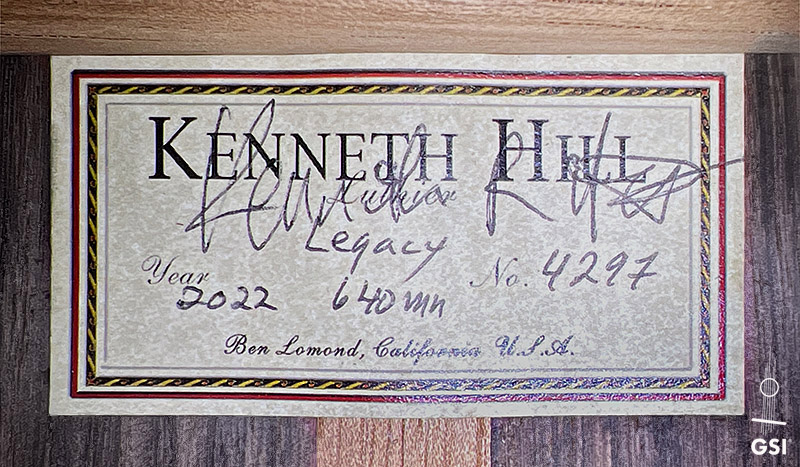 KENNETH HILL
Luthier
Legacy
Year
2022
640mm
No. 4297
Ben Lomond, California U.S.A.
GSI